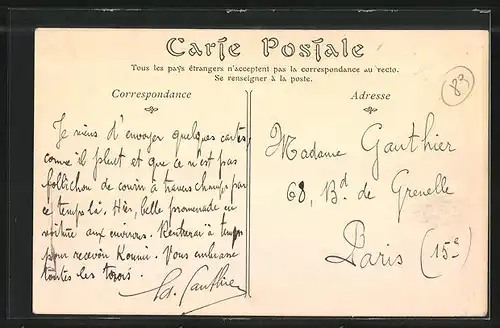 Carte Postale
Tous les pays étrangers n'acceptent pas la correspondance au recto.
Se renseigner à la poste.
Correspondance
Je viens d'envoyer quelques cartes,
comme il pleut et que ce n'est pas
folichon de courir à travers champs par
ce temps là. Hier, belle promenade en
voiture aux environs. Rentrerai à temps
pour recevoir. Vous embrasse
toutes les trois.
Gauthier
Adresse
83
Madame Gauthier
68, Bd. de Grenelle
Paris (15e)